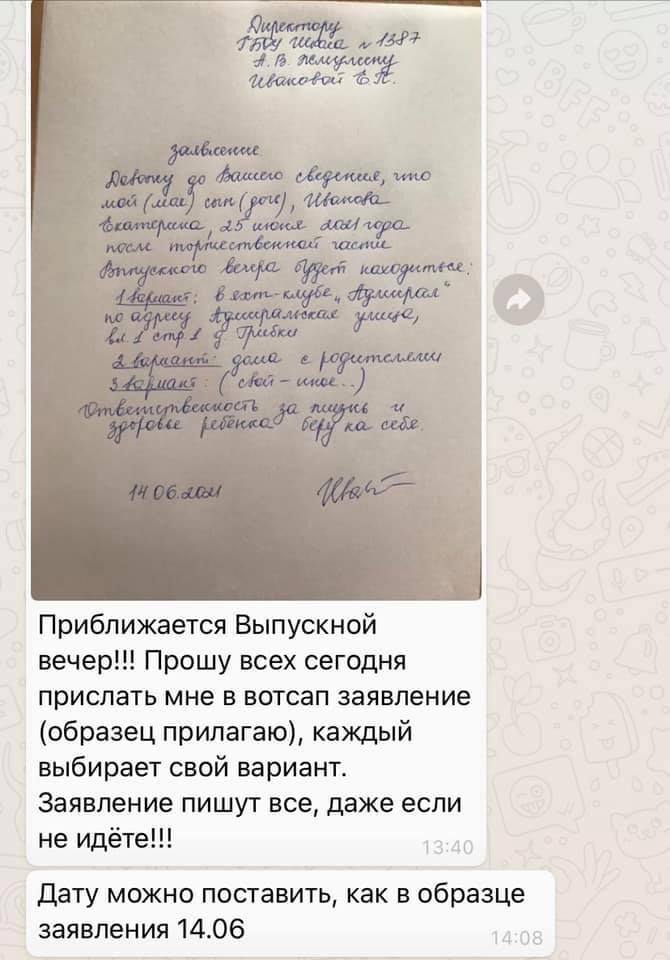 Директору
ГБОУ Школа № 1387
А. В. Жемулину
Ивановой Е.П.
заявление.
Довожу до Вашего сведения, что
мой (мая) сын (дочь), Иванова
Екатерина, 25 июня 2021 года
после торжественной части
Выпускного вечера будет находиться:
1 вариант: в яхт-клубе „Адмирал“
по адресу Адмиральская улица,
вл. 1 стр. 1 д. Грибки
2 вариант: дома с родителями
3 вариант: (свой – иное...)
Ответственность за жизнь и
здоровье ребёнка беру на себя.
14.06.2021
Приближается Выпускной
вечер!!! Прошу всех сегодня
прислать мне в вотсап заявление
(образец прилагаю), каждый
выбирает свой вариант.
Заявление пишут все, даже если
не идёте!!!
13:40
Дату можно поставить, как в образце
заявления 14.06
14:08